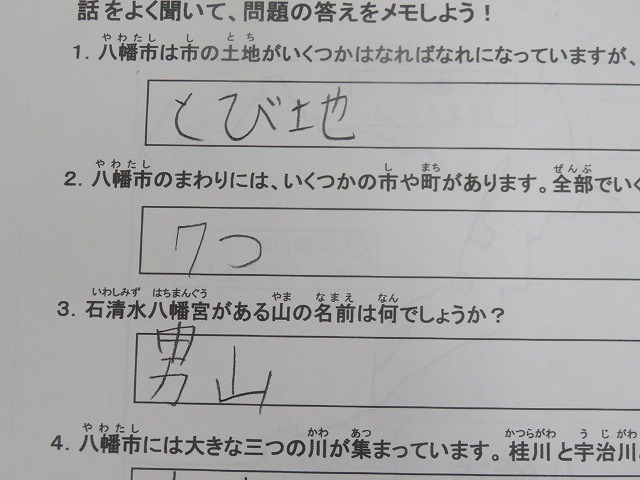 話をよく聞いて、問題の答えをメモしよう！
やわたし し とち
1．八幡市は市の土地がいくつかはなればなれになっていますが、
とび地
やわたし し まち ぜんぶ
2．八幡市のまわりには、いくつかの市や町があります。全部でいく
7つ
いわしみず はちまんぐう やま なまえ なん
3．石清水八幡宮がある山の名前は何でしょうか？
男山
やわたし かわ あつ かつらがわ うじがわ
4．八幡市には大きな三つの川が集まっています。桂川と宇治川